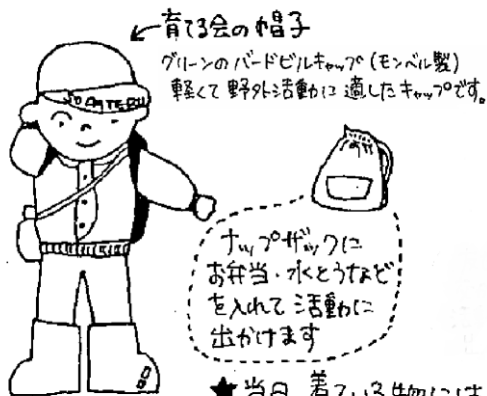 育てる会の帽子
グリーンのバードビルキャップ(モンベル製)
軽くて野外活動に適したキャップです。
ナップザックに
お弁当・水とうなど
を入れて活動に
出かけます
★当日、着ている物には